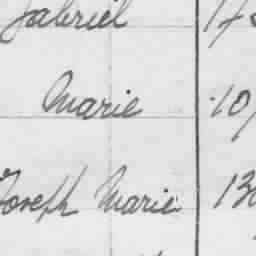 Gabriel
Marie 10
Joseph Marie 13